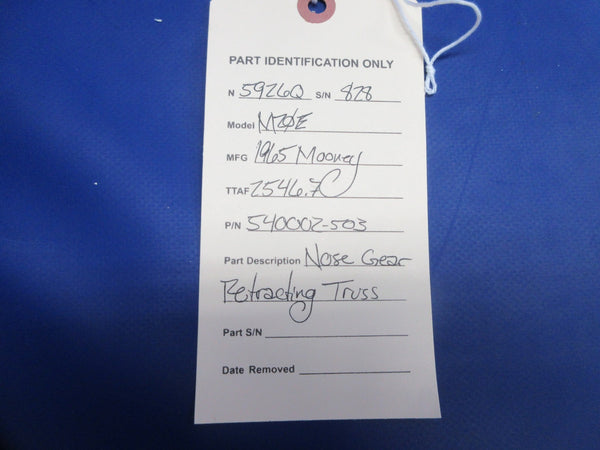 PART IDENTIFICATION ONLY
N 5926Q S/N 828
Model M20E
MFG 1965 Mooney
TTAF 2546.7
P/N 540002-503
Part Description Nose Gear
Retracting Truss
Part S/N
Date Removed